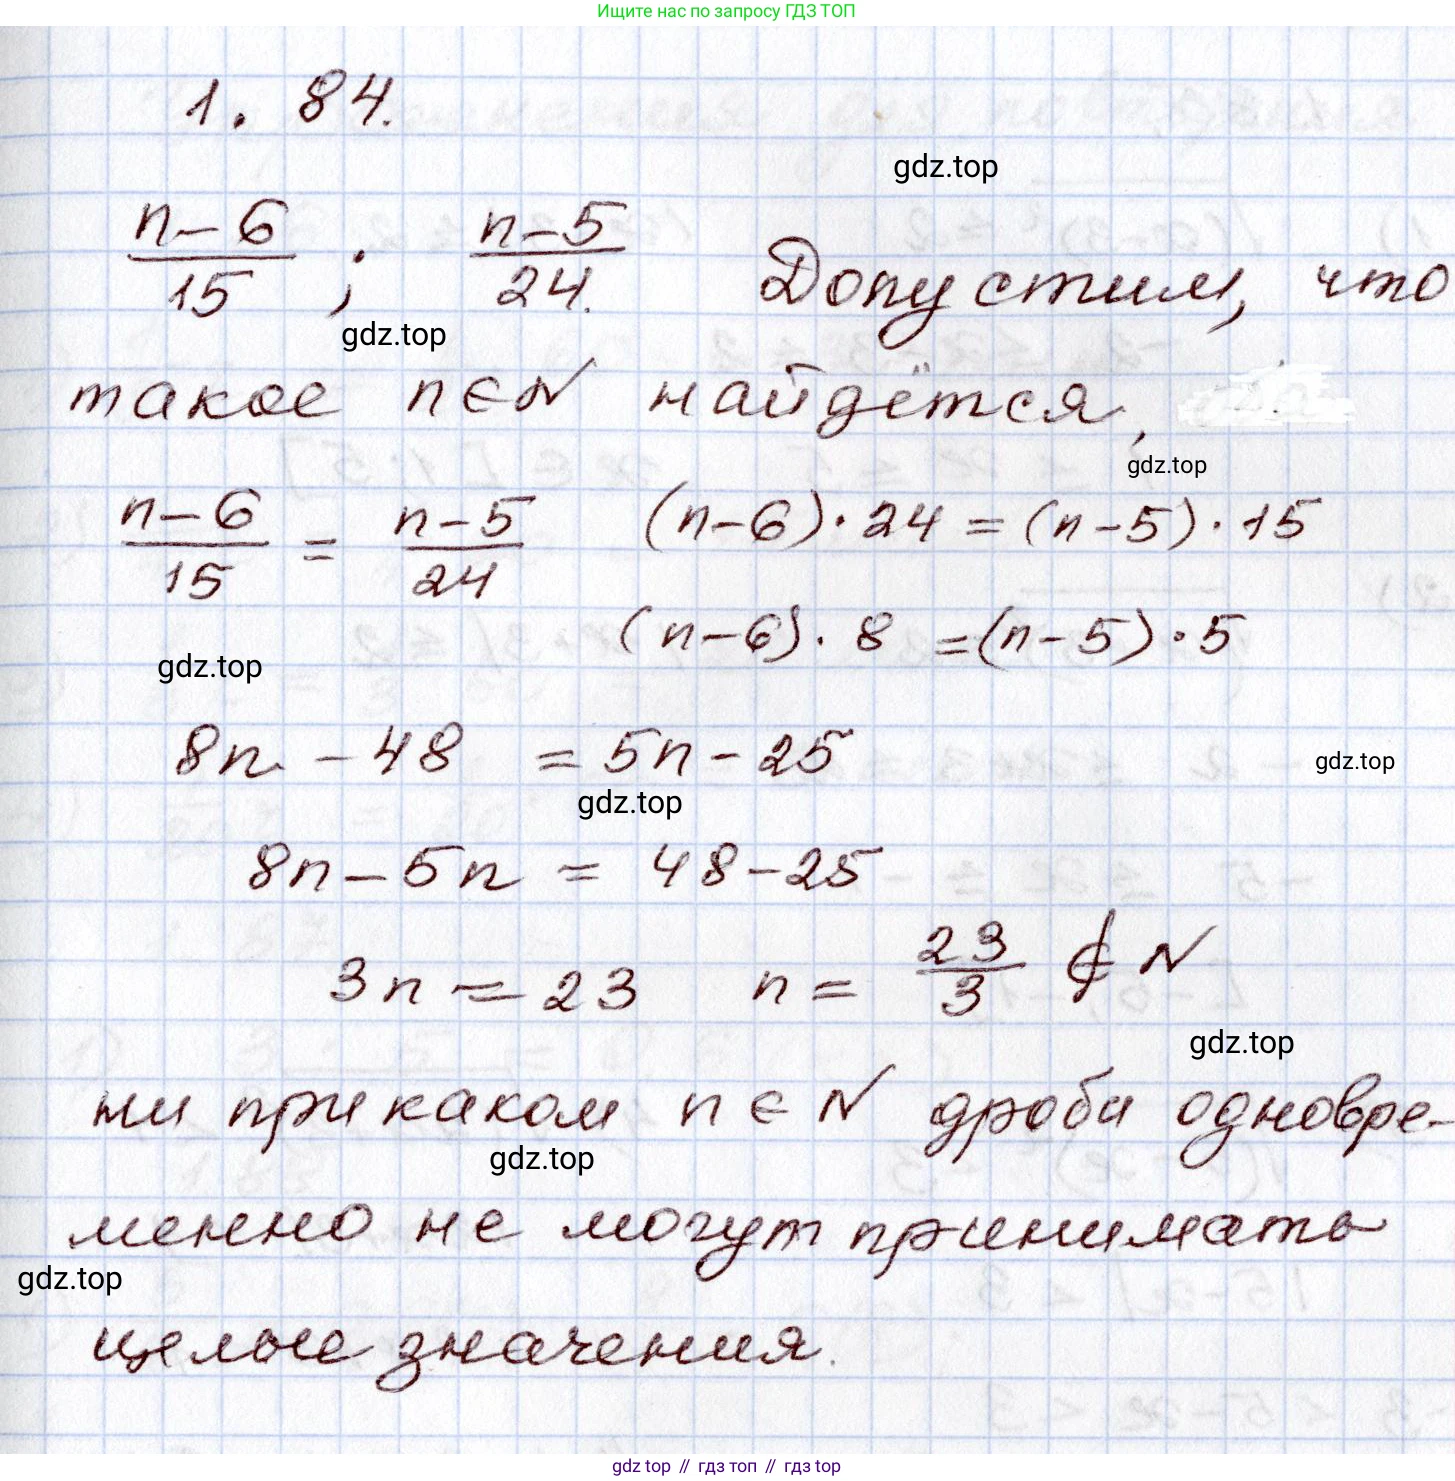 Ищите нас по запросу ГДЗ ТОП
1. 84.
gdz.top
n-6/15 ; n-5/24. Допустим, что
gdz.top
такое n∈N найдётся,
gdz.top
n-6/15 = n-5/24 (n-6)·24=(n-5)·15
(n-6)·8=(n-5)·5
gdz.top
8n-48=5n-25
gdz.top
gdz.top
8n-5n=48-25
3n=23 n=23/3 ∉N
gdz.top
ни при каком n∈N дроби одновре-
gdz.top
менно не могут принимать
gdz.top
целые значения.
gdz top // гдз топ // gdz top